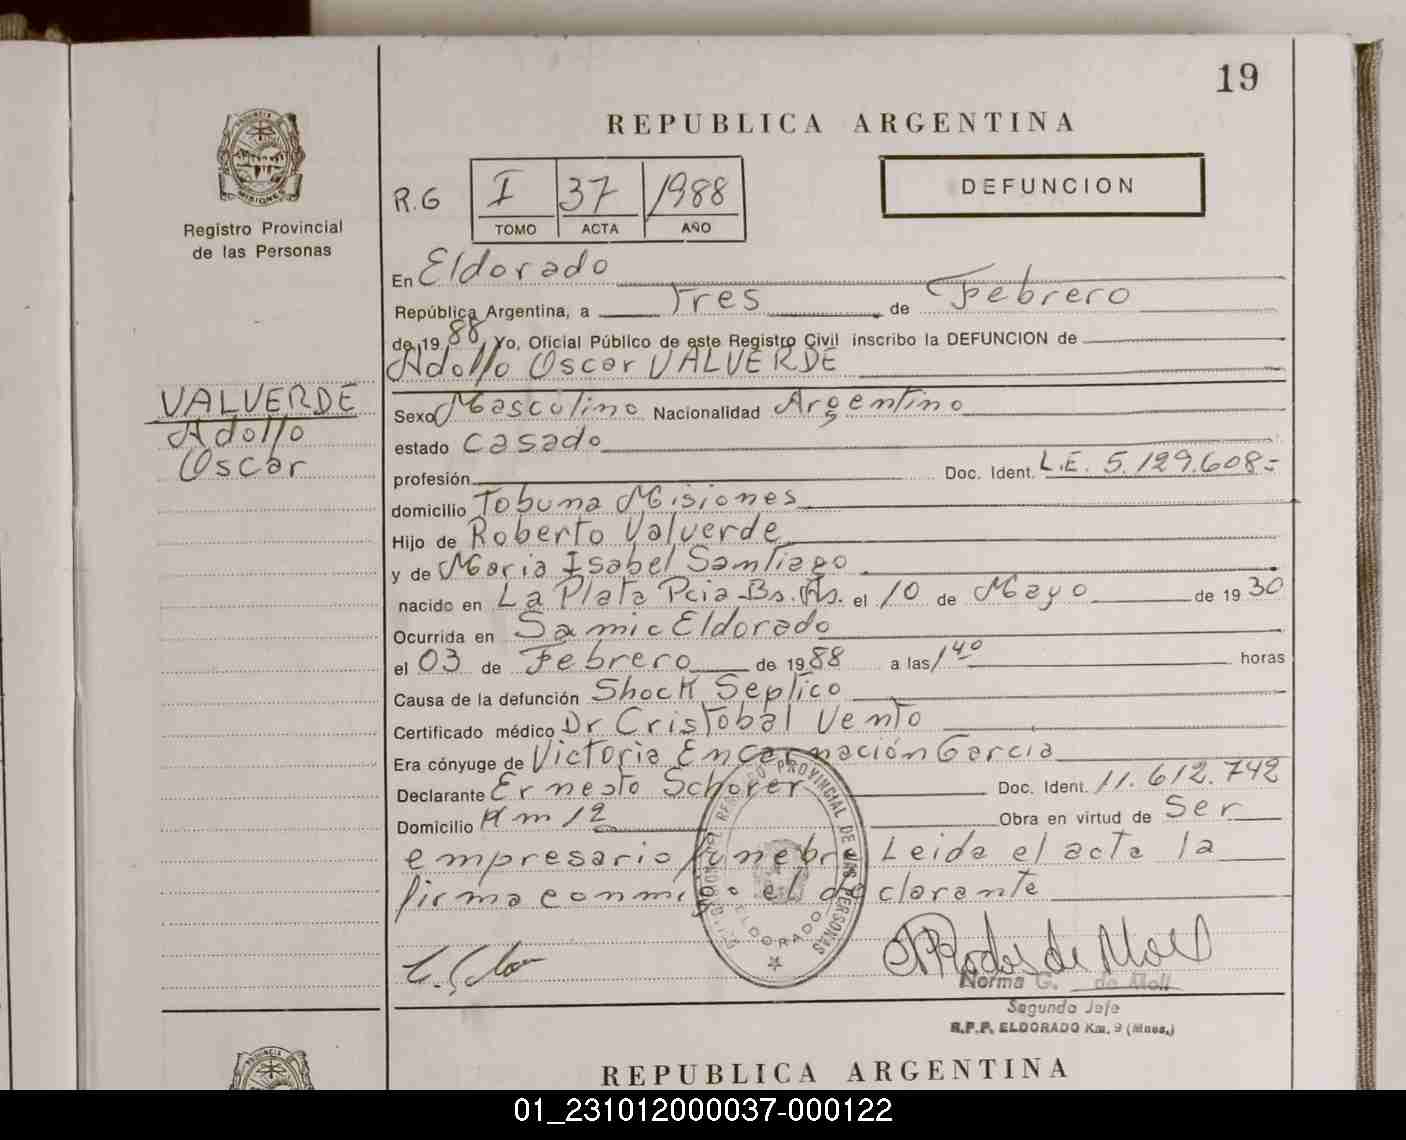 19
REPUBLICA ARGENTINA
PROVINCIA DE MISIONES
Registro Provincial
de las Personas
R.G I 37 1988
TOMO ACTA AÑO
DEFUNCION
En Eldorado
República Argentina, a Tres de Febrero
de 19 88, Yo, Oficial Público de este Registro Civil inscribo la DEFUNCION de
Adolfo Oscar VALVERDE
VALVERDE
Adolfo
Oscar
Sexo Masculino Nacionalidad Argentino
estado Casado
profesión Doc. Ident. L.E. 5.129.608=
domicilio Tobuna Misiones
Hijo de Roberto Valverde
y de Maria Isabel Santiago
nacido en La Plata Pcia Bs. As. el 10 de Mayo de 19 30
Ocurrida en Samic Eldorado
el 03 de Febrero de 19 88 a las 1 40 horas
Causa de la defunción Shock Septico
Certificado médico Dr Cristobal Vento
Era cónyuge de Victoria Encarnación Garcia
Declarante Ernesto Schorer Doc. Ident. 11.612.742
Domicilio Km 12 Obra en virtud de Ser
empresario funebre Leida el acta la
firma conmigo el declarante
REGISTRO PROVINCIAL DE LAS PERSONAS
ELDORADO
Norma G. de Moll
Segundo Jefe
R.P.P. ELDORADO Km. 9 (Mnes.)
PROVINCIA DE
REPUBLICA ARGENTINA
01_231012000037-000122